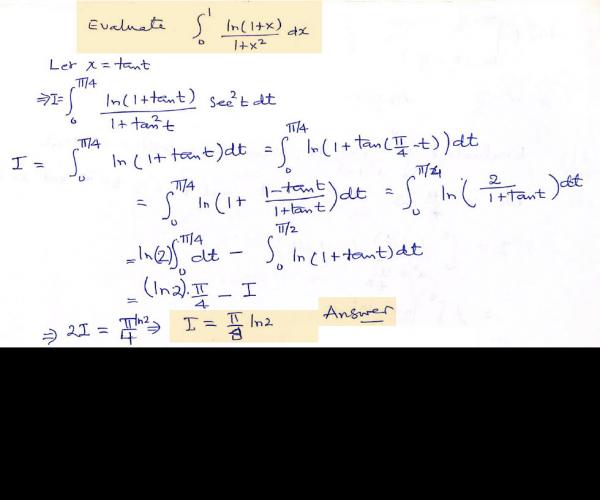 Evaluate ∫₀¹ ln(1+x)/(1+x²) dx
Let x = tant
⇒I=∫₀^(π/4) ln(1+tant)/(1+tan²t) sec²t dt
I = ∫₀^(π/4) ln(1+tant)dt = ∫₀^(π/4) ln(1+tan(π/4-t))dt
= ∫₀^(π/4) ln(1+ (1-tant)/(1+tant))dt = ∫₀^(π/4) ln(2/(1+tant))dt
=ln(2)∫₀^(π/4) dt − ∫₀^(π/2) ln(1+tant)dt
= (ln2).π/4 − I
⇒ 2I = πln2/4 ⇒ I = π/8 ln2 Answer